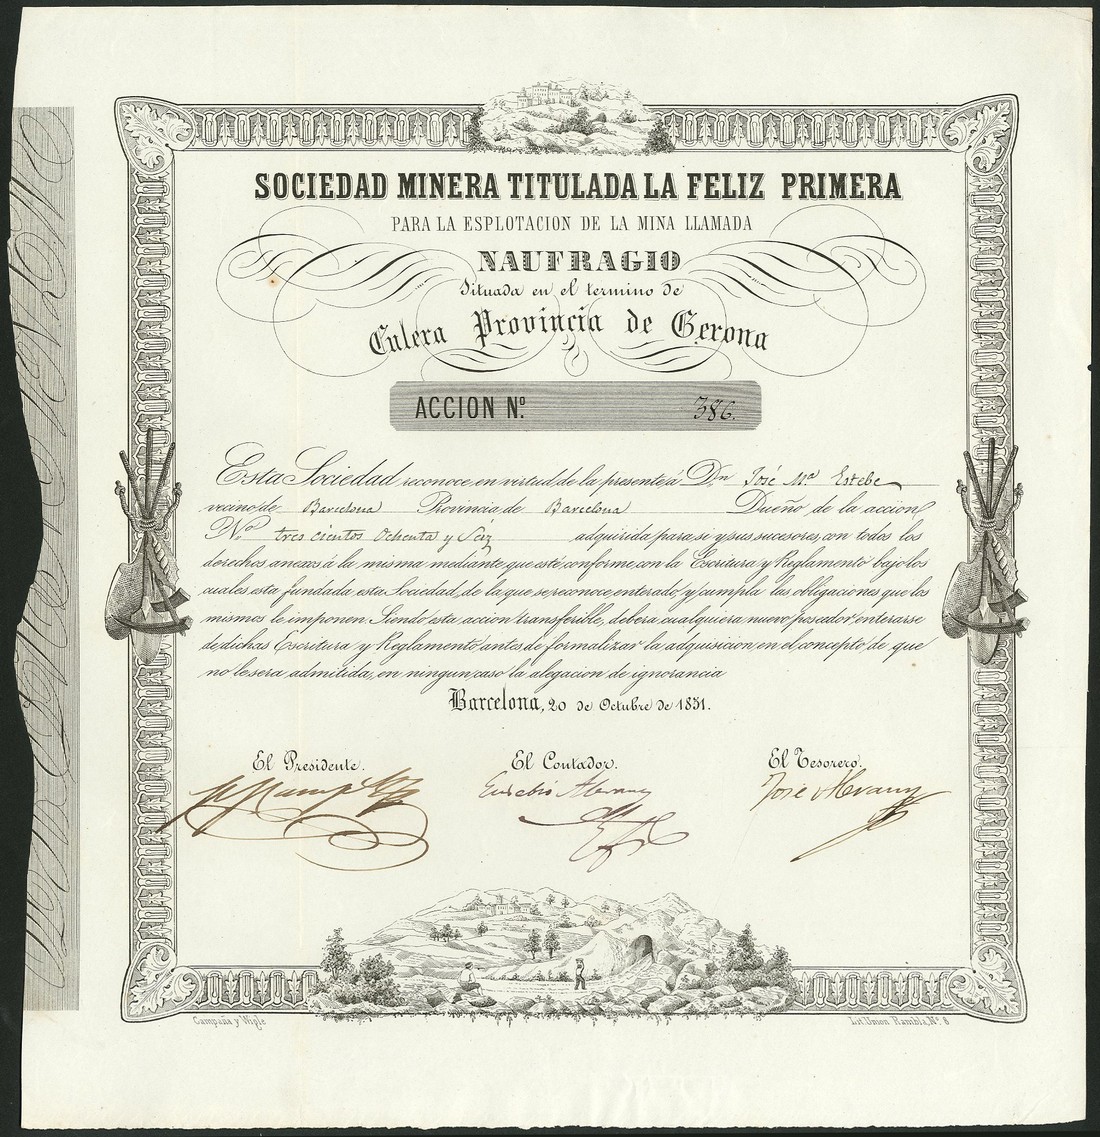 SOCIEDAD MINERA TITULADA LA FELIZ PRIMERA
PARA LA ESPLOTACION DE LA MINA LLAMADA
NAUFRAGIO
Situada en el termino de
Culera Provincia de Gerona
ACCION Nº 386.
Esta Sociedad reconoce en virtud de la presente á Dn José Mª Estebe
vecino de Barcelona Provincia de Barcelona Dueño de la accion
N.º tres cientos Ochenta y Seiz adquirida para si y sus sucesores, con todos los
derechos anexos á la misma mediante que esté conforme con la Escritura y Reglamento bajo los
cuales esta fundada esta Sociedad, de la que se reconoce enterado, y cumpla las obligaciones que los
mismos le imponen. Siendo esta accion transferible, debera cualquiera nuevo poseedor enterarse
de dichas Escritura y Reglamento antes de formalizar la adquisicion, en el concepto de que
no le sera admitida, en ningun caso la alegacion de ignorancia
Barcelona, 20 de Octubre de 1851.
El Presidente. El Contador. El Tesorero.
Eusebio José
Campaña y Viple Lit. Union Rambla, Nº 8